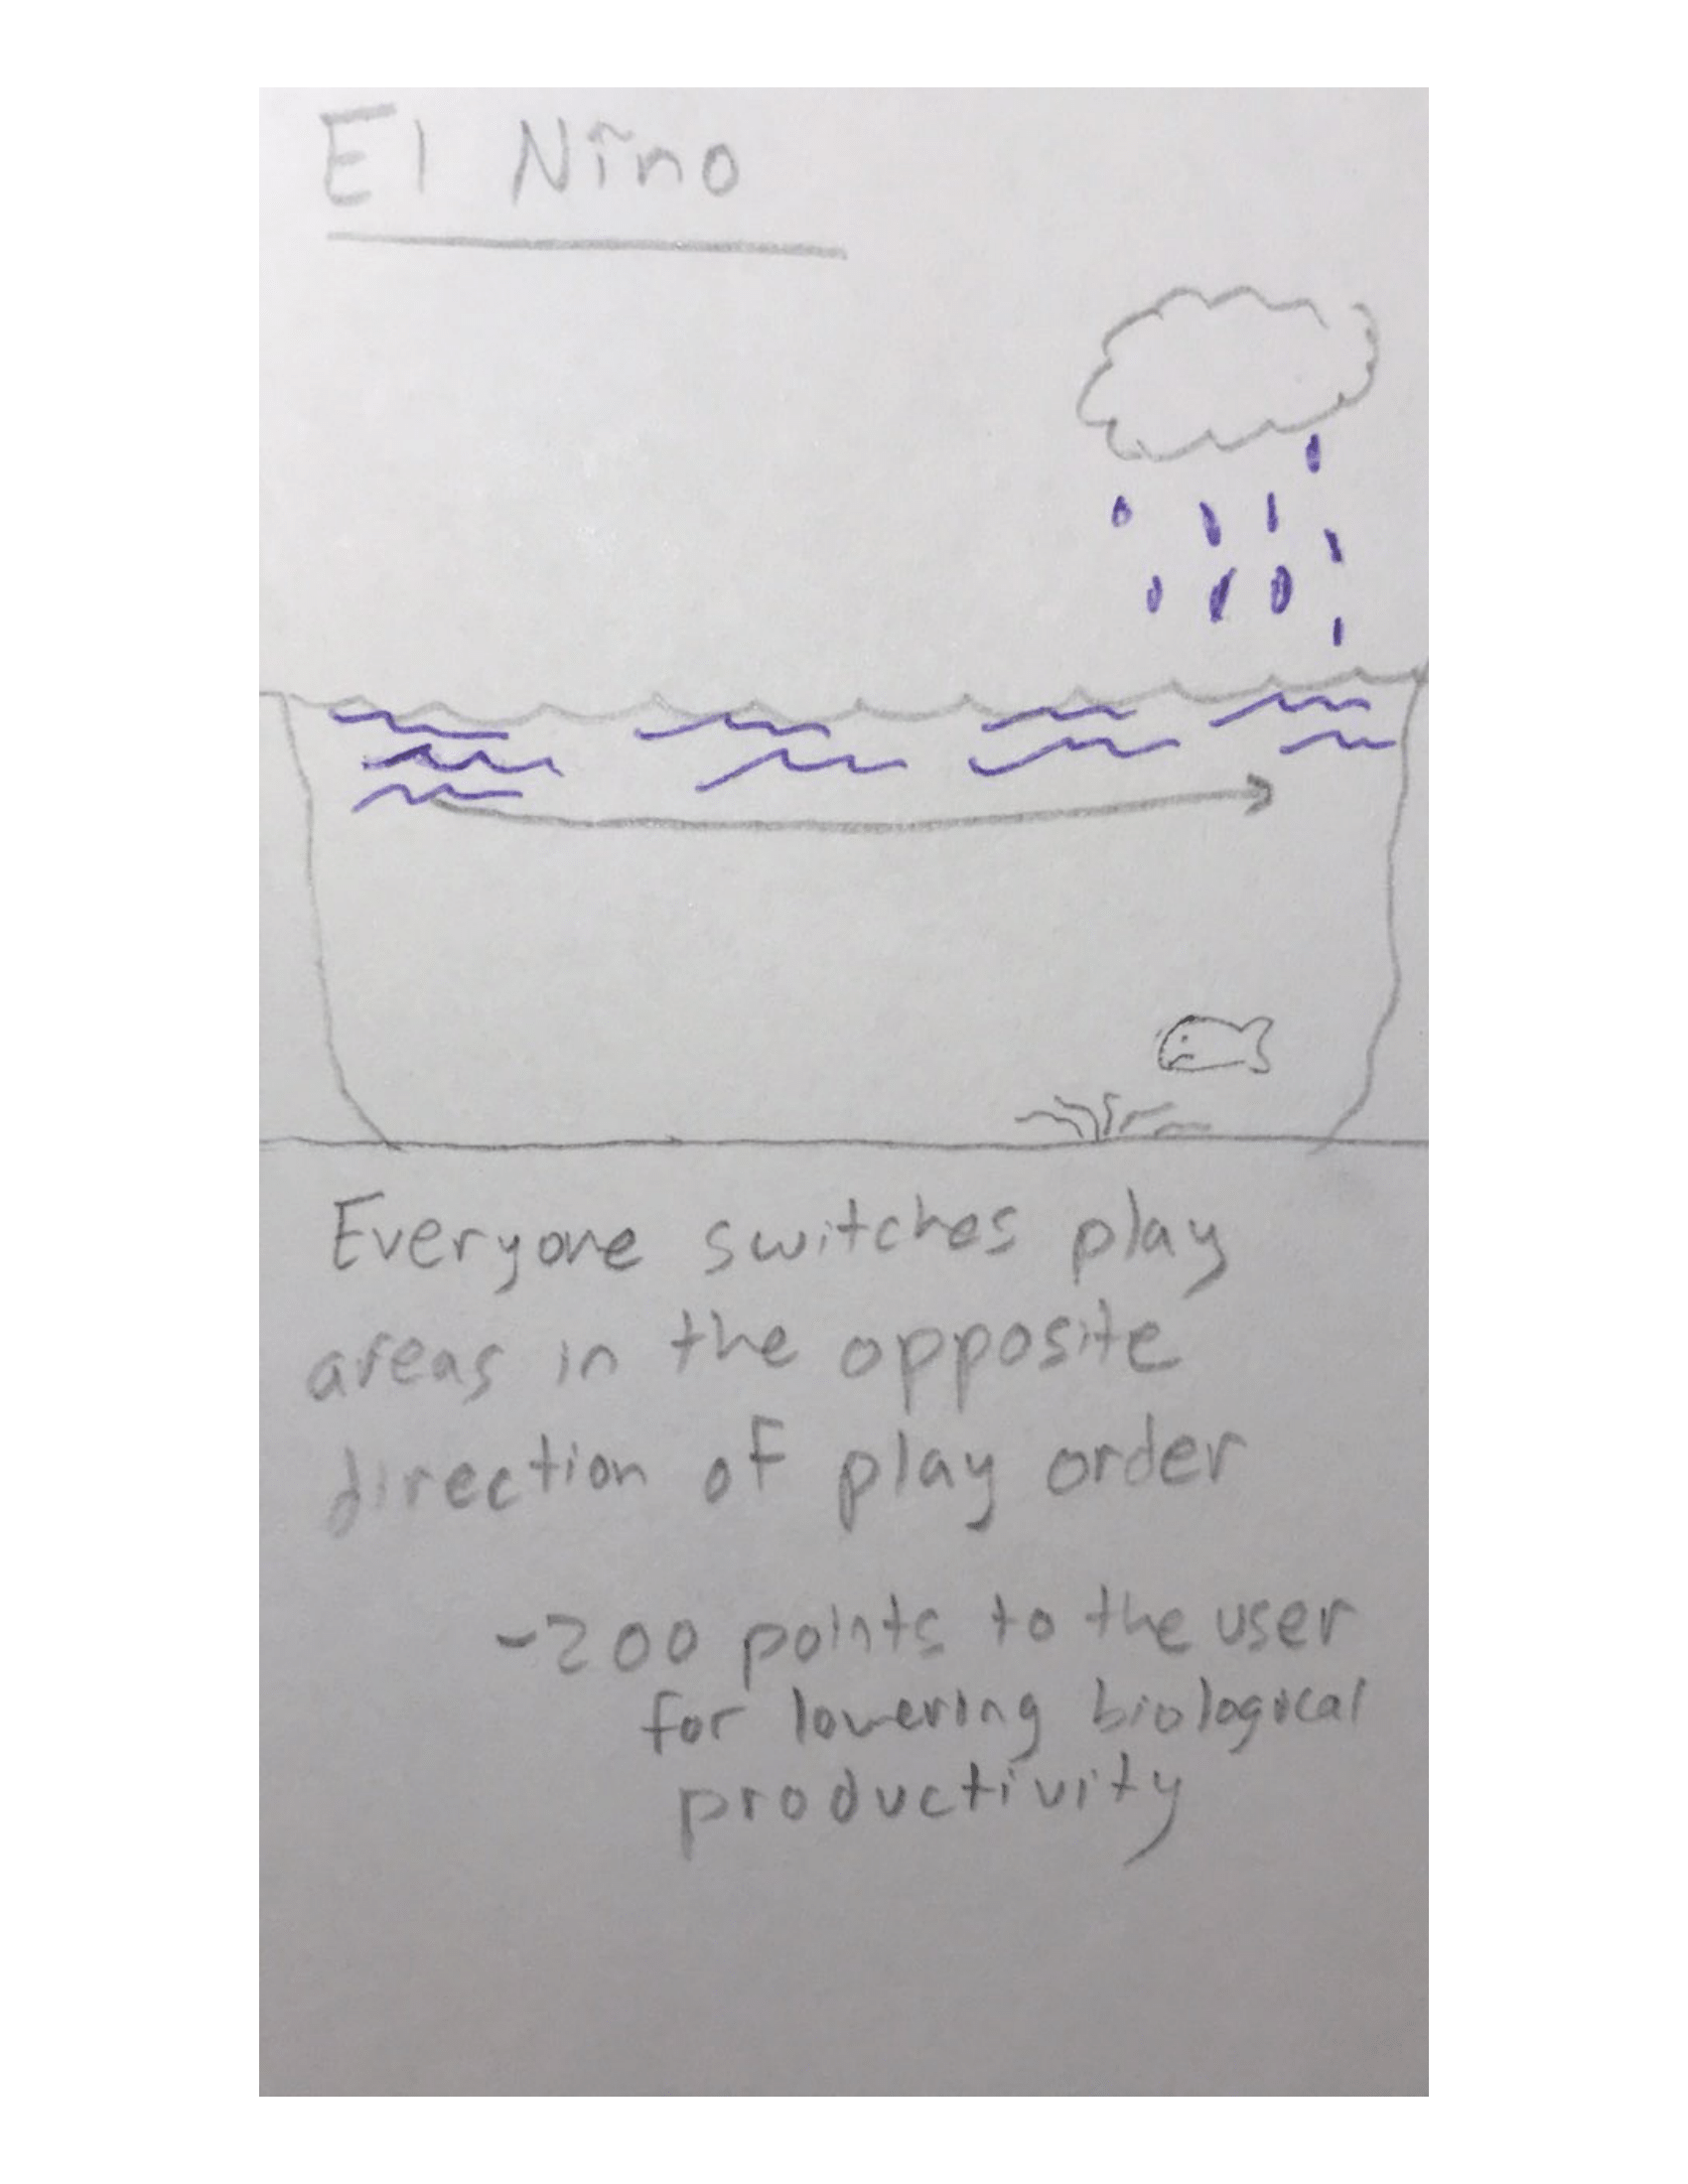 El Niño
Everyone switches play
areas in the opposite
direction of play order
-200 points to the user
for lowering biological
productivity